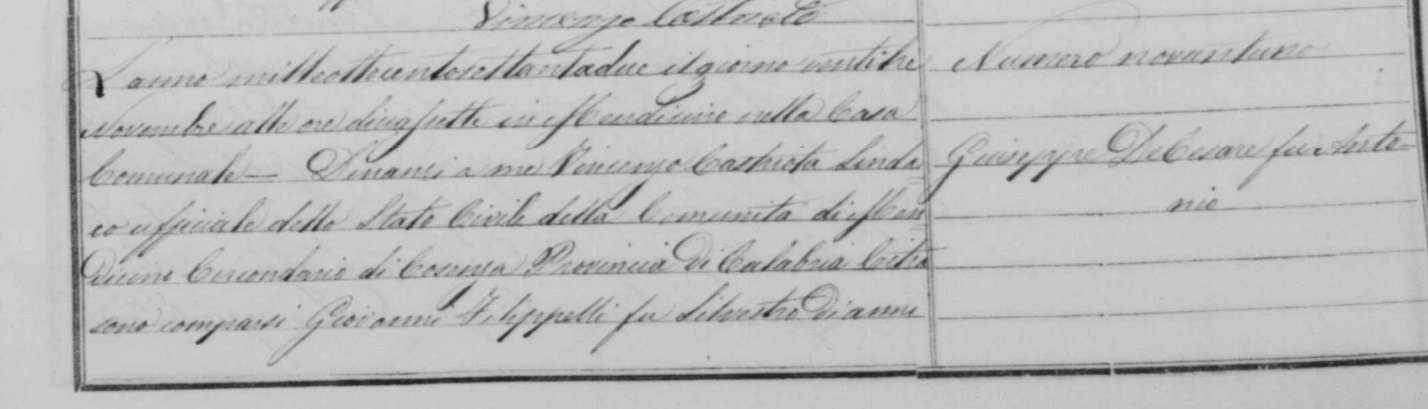 Vincenzo
L'anno milleottocentosettantadue il giorno ventitre
Novembre alle ore diciassette in Mendicino nella Casa
Comunale — Dinanzi a me Vincenzo Castriota Sinda=
co ufficiale dello Stato Civile della Comunita di Men=
dicino Circondario di Cosenza Provincia di Calabria Citra
sono comparsi Giovanni Filippelli fu Silvestro di anni
Numero novantuno
Giuseppe DeCesare fu Anto=
nio